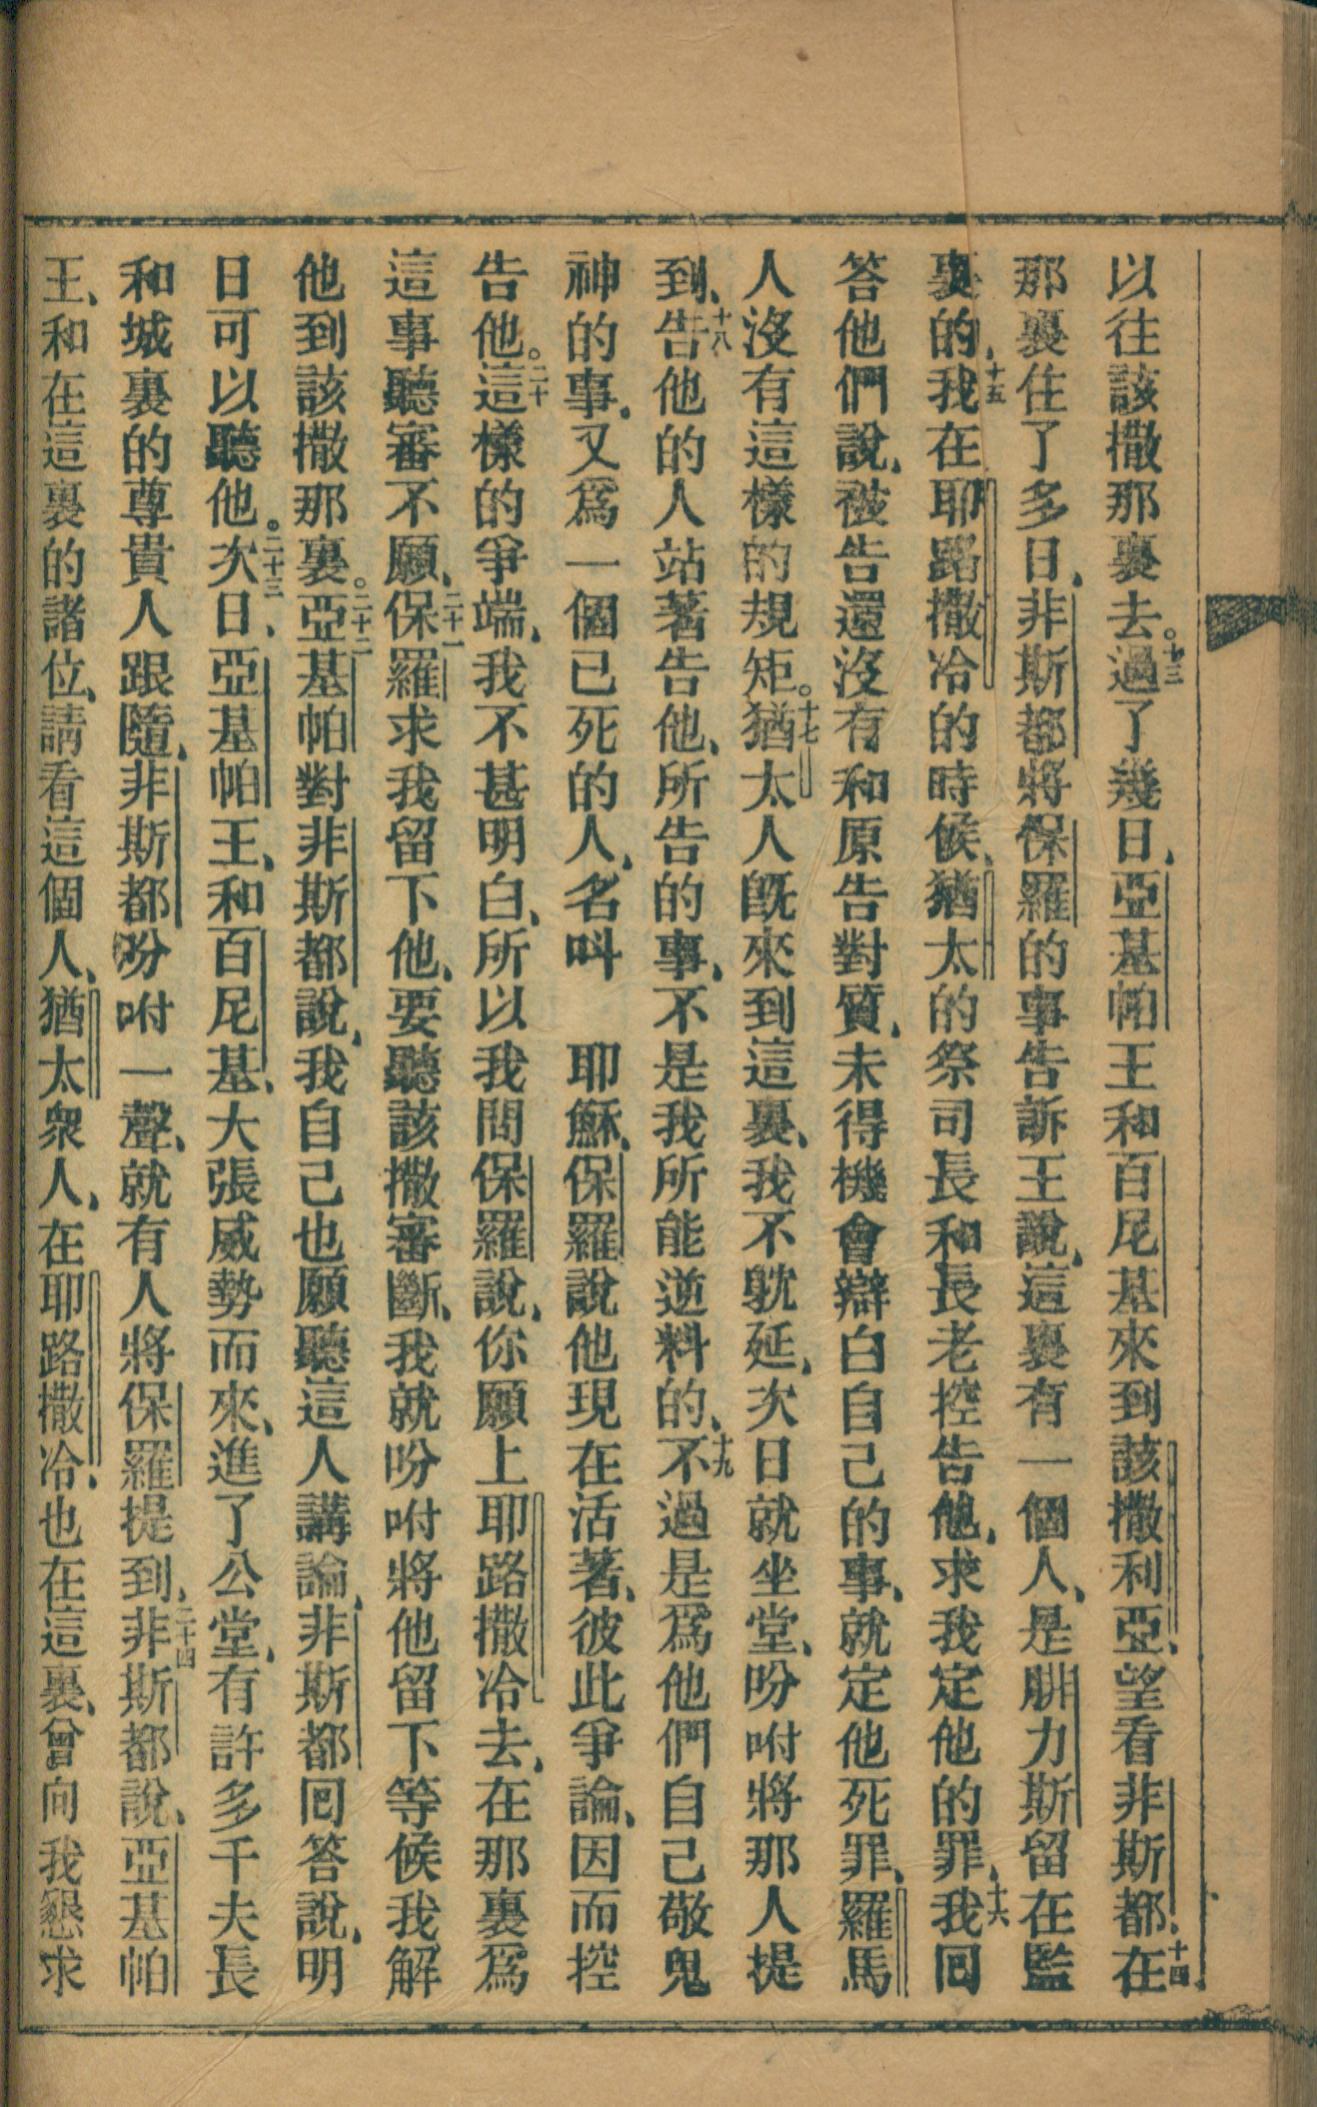 以往該撒那裏去。十三過了幾日、亞基帕王和百尼基來到該撒利亞、望看非斯都、十四在
那裏住了多日、非斯都將保羅的事告訴王說、這裏有一個人、是腓力斯留在監
裏的、十五我在耶路撒冷的時候、猶太的祭司長和長老控告他、求我定他的罪、十六我回
答他們說、被告還沒有和原告對質、未得機會辯白自己的事、就定他死罪、羅馬
人沒有這樣的規矩。十七猶太人旣來到這裏、我不躭延、次日就坐堂、吩咐將那人提
到、十八告他的人站著告他、所告的事、不是我所能逆料的、十九不過是爲他們自己敬鬼
神的事、又爲一個已死的人、名叫　耶穌、保羅說他現在活著、彼此爭論、因而控
告他。二十這樣的爭端、我不甚明白、所以我問保羅說、你願上耶路撒冷去、在那裏爲
這事聽審不願、二十一保羅求我留下他、要聽該撒審斷、我就吩咐將他留下等候我解
他到該撒那裏。二十二亞基帕對非斯都說、我自己也願聽這人講論、非斯都回答說、明
日可以聽他。二十三次日、亞基帕王、和百尼基、大張威勢而來、進了公堂、有許多千夫長
和城裏的尊貴人跟隨、非斯都吩咐一聲、就有人將保羅提到、二十四非斯都說、亞基帕
王、和在這裏的諸位、請看這個人、猶太衆人、在耶路撒冷、也在這裏、曾向我懇求